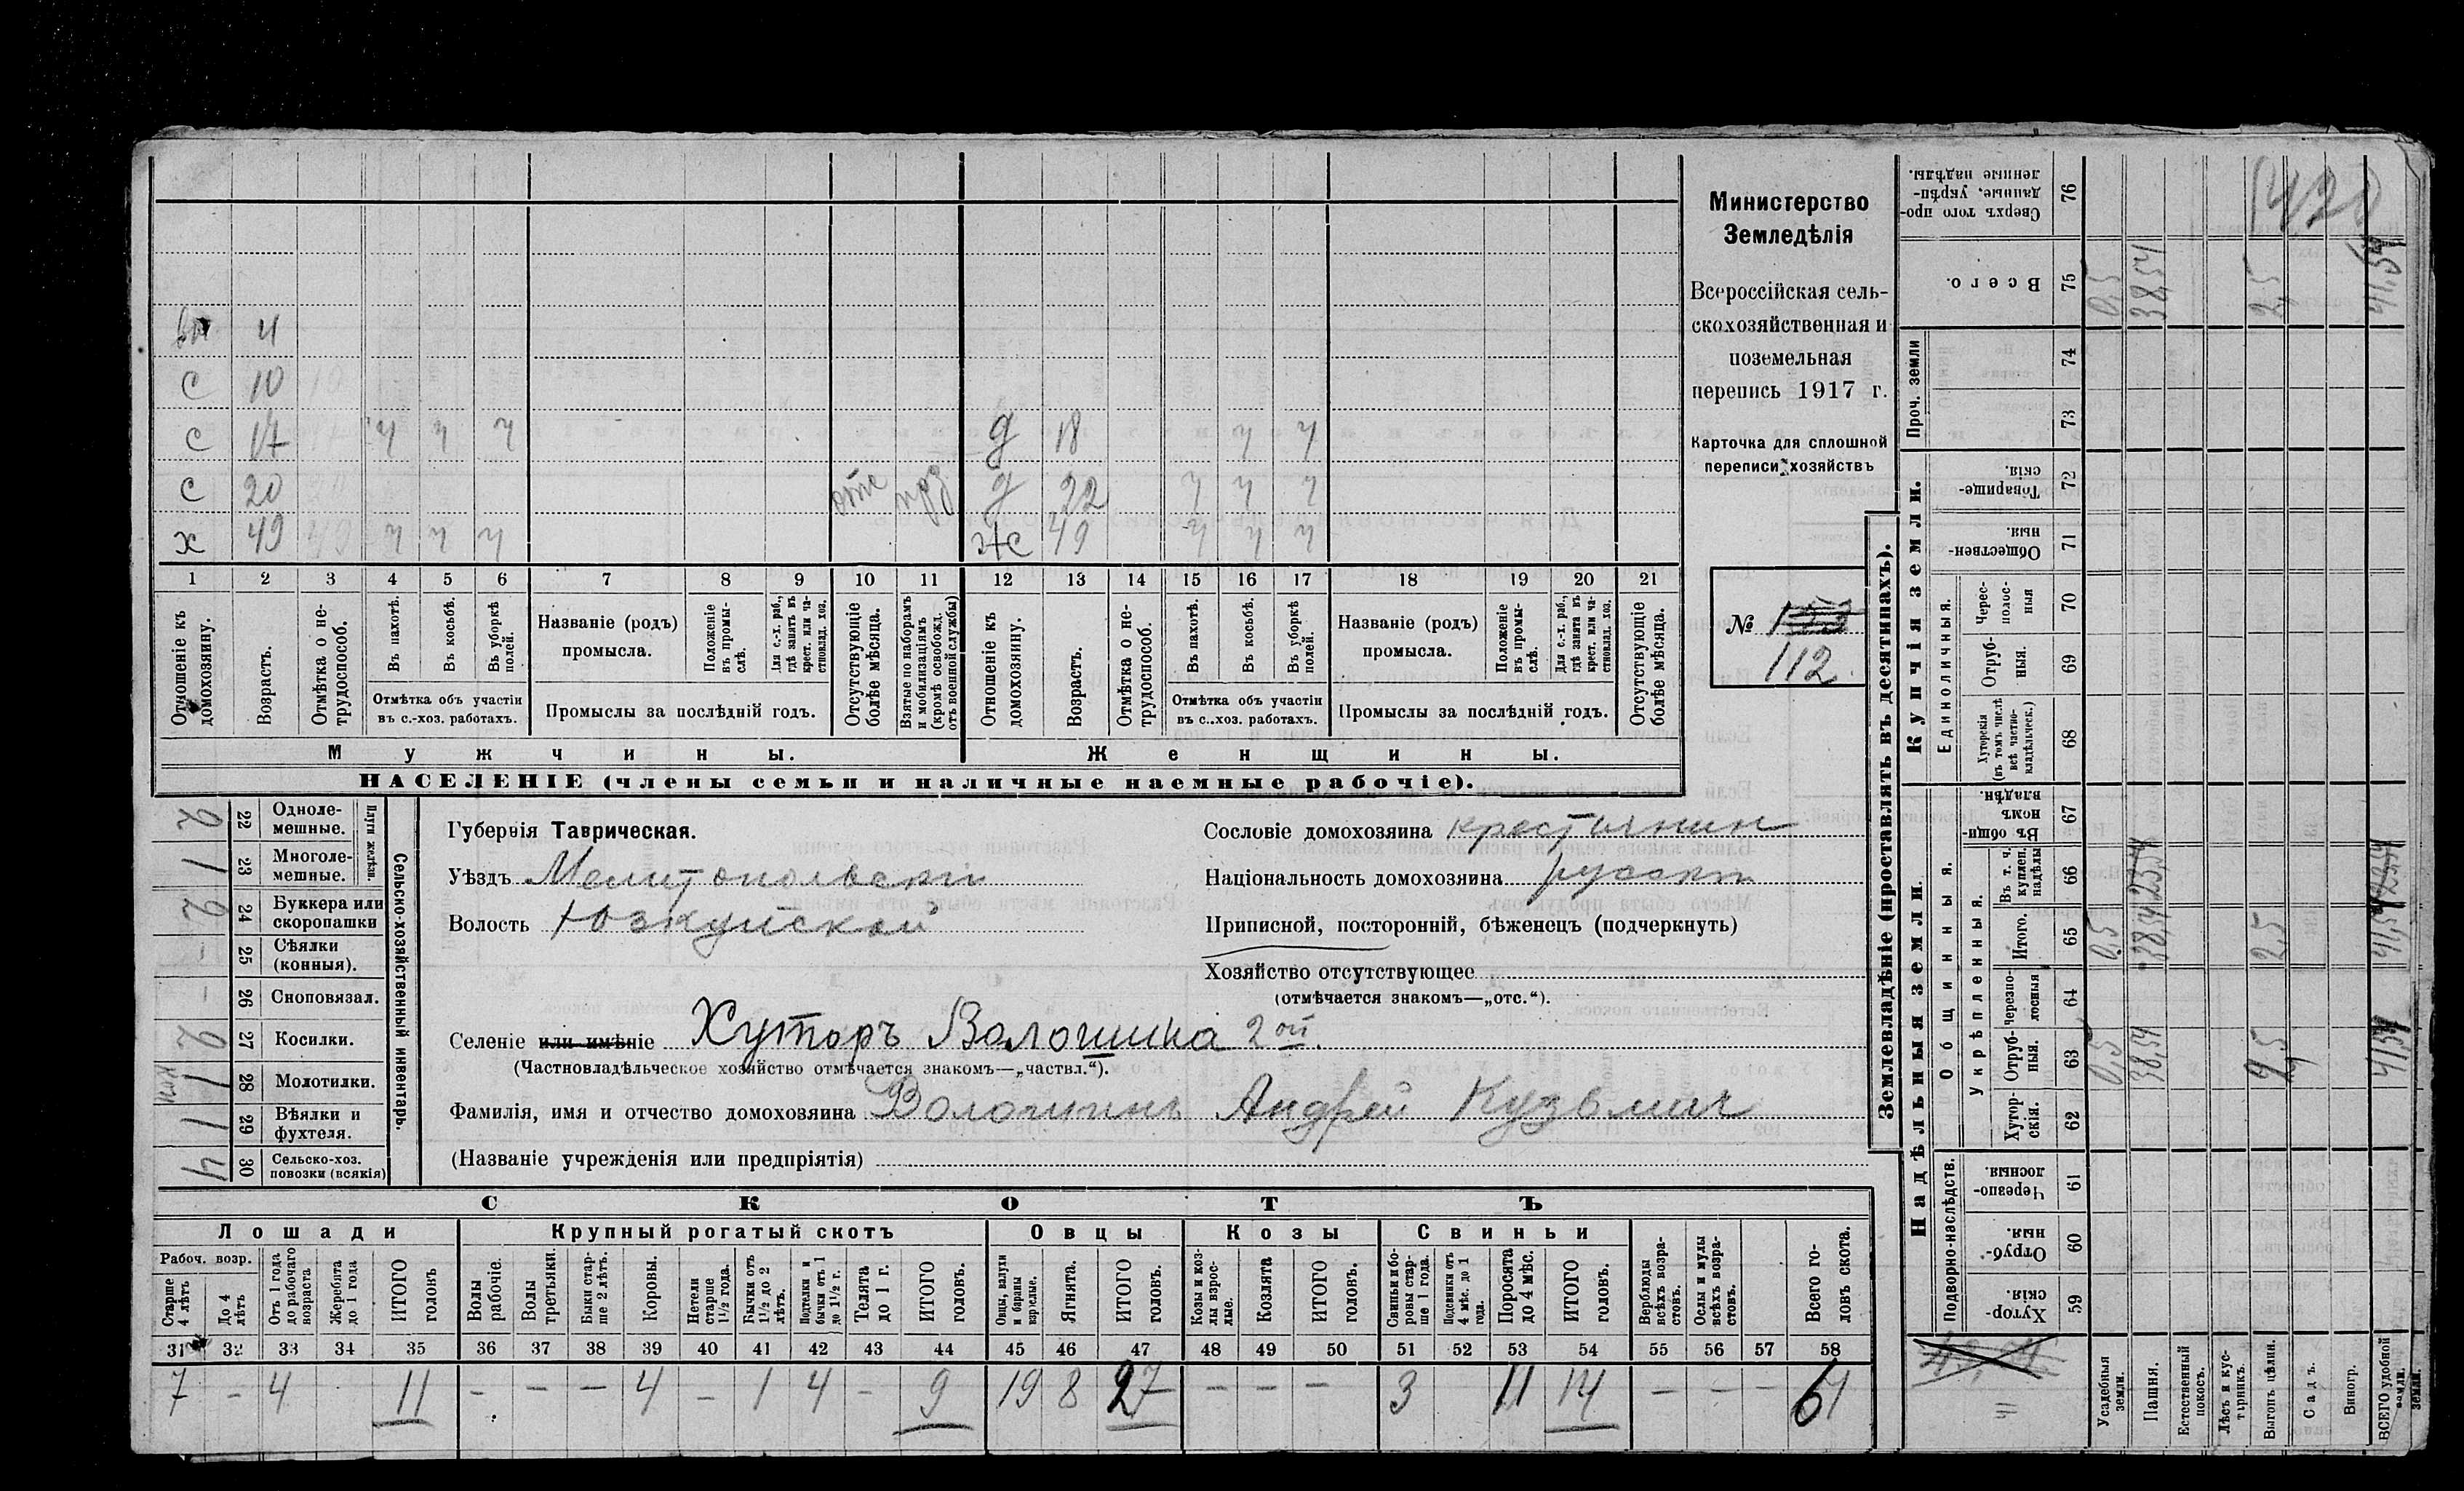 вн 4
С 10
С 17 ч ч ч д 18 ч ч
С 20 отс д 22 ч ч ч
х 49 ч ч ч ж 49 ч ч ч
1 2 3 4 5 6 7 8 9 10 11 12 13 14 15 16 17 18 19 20 21
Отношеніе къ домохозяину.
Возрастъ.
Отмѣтка о не-
трудоспособ.
Въ пахотѣ.
Въ косьбѣ.
Въ уборкѣ
полей.
Отмѣтка объ участіи
въ с.-хоз. работахъ.
Названіе (родъ)
промысла.
Положеніе
въ промы-
слѣ.
Для с.-х. раб.,
гдѣ занятъ въ
крест. или ча-
стновлад. хоз.
Промыслы за послѣдній годъ.
Отсутствующіе
болѣе мѣсяца.
Взятые по наборамъ
и мобилизаціямъ
(кромѣ освобожд.
отъ военной службы)
Отношеніе къ
домохозяину.
Возрастъ.
Отмѣтка о не-
трудоспособ.
Въ пахотѣ.
Въ косьбѣ.
Въ уборкѣ
полей.
Отмѣтка объ участіи
въ с..хоз. работахъ.
Названіе (родъ)
промысла.
Положеніе
въ промы-
слѣ.
Для с.-х. раб.,
гдѣ занята въ
крест. или ча-
стновлад. хоз.
Промыслы за послѣдній годъ.
Отсутствующіе
болѣе мѣсяца.
Мужчины. Женщины.
НАСЕЛЕНІЕ (члены семьи и наличные наемные рабочіе).
Министерство
Земледѣлія
Всероссійская сель-
скохозяйственная и
поземельная
перепись 1917 г.
Карточка для сплошной
переписи хозяйствъ
№ 133
112
Сельско-хозяйственный инвентарь.
Плуги желѣзн.
2 22 Одноле-
мешные.
1 23 Многоле-
мешные.
2 24 Буккера или
скоропашки
- 25 Сѣялки
(конныя).
- 26 Сноповязал.
2 27 Косилки.
1 28 Молотилки.
1 29 Вѣялки и
фухтеля.
4 30 Сельско-хоз.
повозки (всякія)
Губернія Таврическая.
Уѣздъ Мелитопольскій
Волость Юзкуйской
Сословіе домохозяина крестьянин
Національность домохозяина русскій
Приписной, посторонній, бѣженецъ (подчеркнуть)
Хозяйство отсутствующее
(отмѣчается знакомъ—„отс.“).
Селеніе или имѣніе Хуторъ Волошина 2ой.
(Частновладѣльческое хозяйство отмѣчается знакомъ—„частвл.“).
Фамилія, имя и отчество домохозяина Волошинъ Андрей Кузьмич
(Названіе учрежденія или предпріятія)
СКОТЪ
Лошади Крупный рогатый скотъ Овцы Козы Свиньи
Рабоч. возр.
Старше
4 лѣтъ
До 4
лѣтъ
Отъ 1 года
до рабочаго
возраста
Жеребята
до 1 года
ИТОГО
головъ
Волы
рабочіе.
Волы
третьяки.
Быки стар-
ше 2 лѣтъ.
Коровы.
Нетели
старше
1½ года.
Бычки отъ
1½ до 2
лѣтъ.
Подтелки и
бычки отъ 1
до 1½ г.
Телята
до 1 г.
ИТОГО
головъ.
Овцы, валухи
и бараны
взрослые.
Ягнята.
ИТОГО
головъ.
Козы и коз-
лы взрос-
лые.
Козлята
ИТОГО
головъ.
Свиньи и бо-
ровы стар-
ше 1 года.
Подсвинки отъ
4 мѣс. до 1
года.
Поросята
до 4 мѣс.
ИТОГО
головъ.
Верблюды
всѣхъ возра-
стовъ.
Ослы и мулы
всѣхъ возра-
стовъ.
Всего го-
ловъ скота.
31 32 33 34 35 36 37 38 39 40 41 42 43 44 45 46 47 48 49 50 51 52 53 54 55 56 57 58
7 - 4 11 - - - 4 - 1 4 - 9 19 8 27 - - - 3 11 14 - - - 61
Землевладѣніе (проставлять въ десятинахъ).
Купчія земли.
Проч. земли
Единоличныя.
Надѣльныя земли.
Общинныя.
Укрѣпленныя.
Подворно-наслѣдств.
Сверхъ того про-
данные, укрѣп-
ленные надѣлы.
76
Всего.
75
74
73
Товарище-
скія.
72
Обществен-
ныя.
71
Черес-
полос-
ныя
70
Отруб-
ныя.
69
Хуторскія
(въ томъ числѣ
всѣ частно-
владѣльческ.)
68
Въ общи-
номъ
владѣн.
67
Въ т. ч.
куплен.
надѣлы
66
Итого.
65
Черезпо-
лосныя
64
Отруб-
ныя.
63
Хутор-
скія.
62
Черезпо-
лосныя.
61
Отруб-
ныя.
60
Хутор-
скія.
59
Усадебныя
земли.
0,5 0,5 0,5
Пашня.
38,54 38,54 38,54
Естественный
покосъ.
Лѣсъ и кус-
тарникъ.
Выгонъ цѣлин.
2,5 2,5 2,5
Садъ.
Виногр.
ВСЕГО удобной
земли.
41,54 41,54 41,54
1428